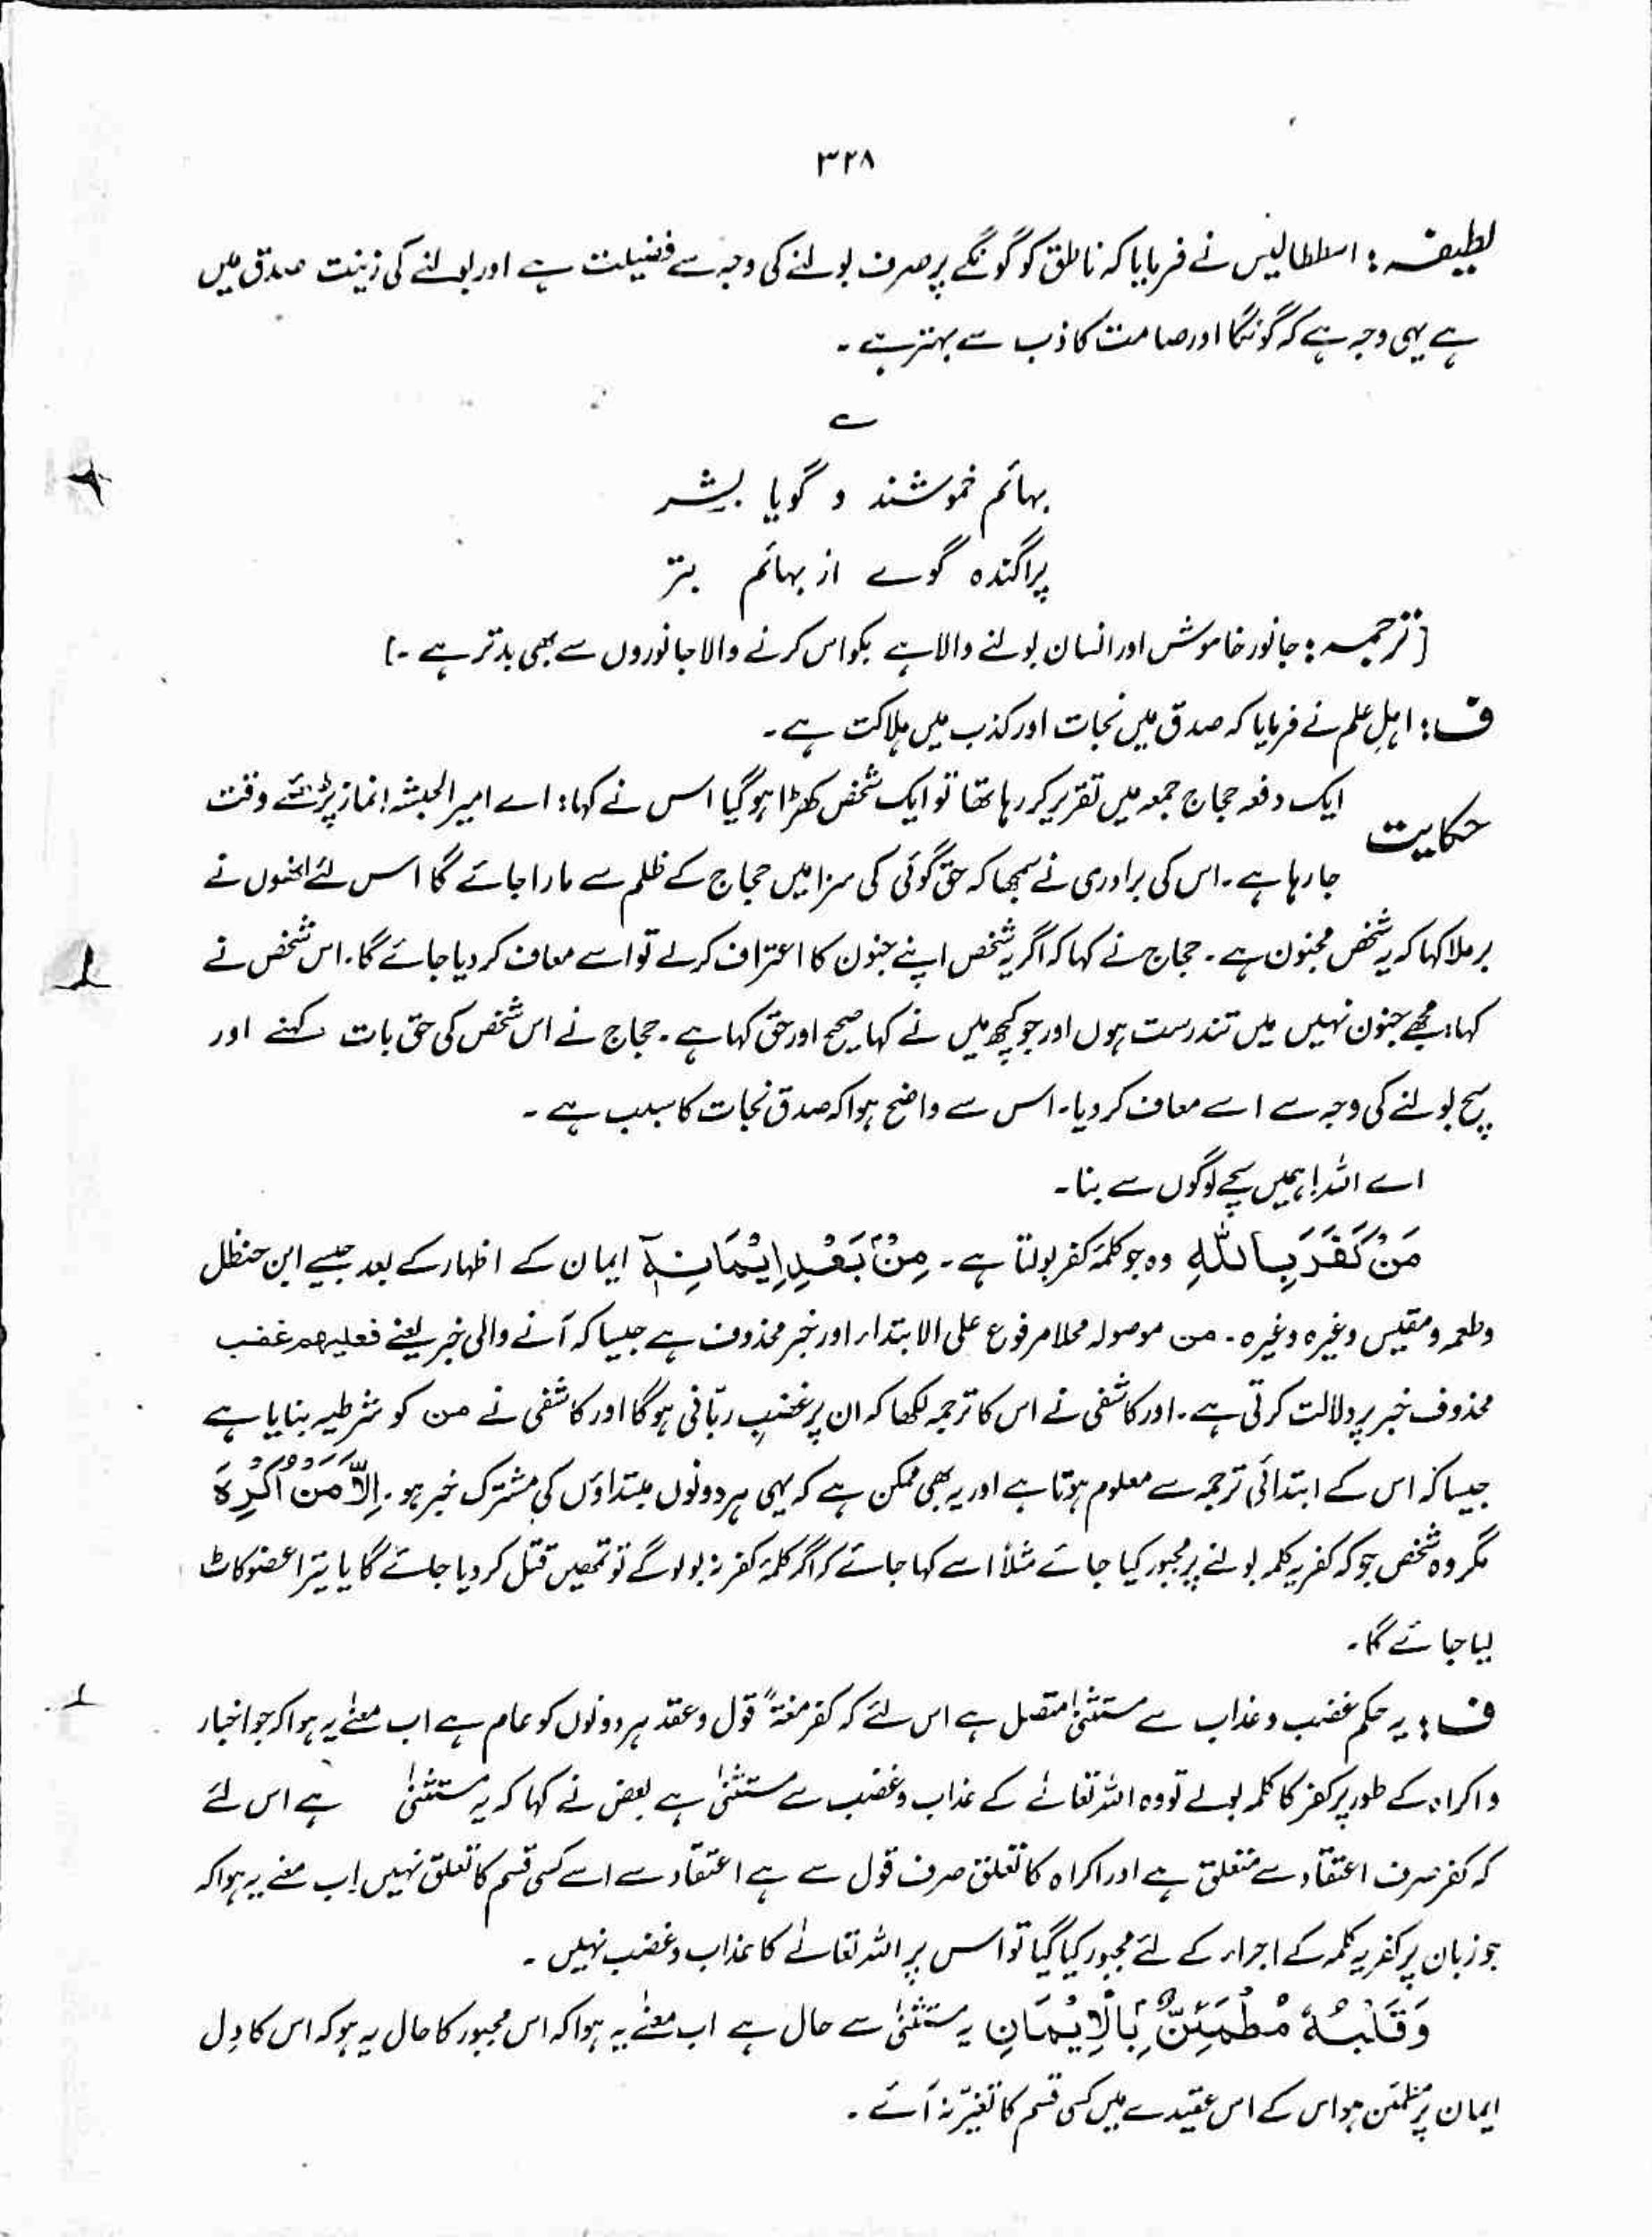 ۳۲۸
لطیفہ: اسطاطالیس نے فرمایا کہ ناطق کو گونگے پر صرف بولنے کی وجہ سے فضیلت ہے اور بولنے کی زینت صدق میں
ہے یہی وجہ ہے کہ گونگا اور صامت کاذب سے بہتر ہے۔
بہائم خموشند و گویا بشر
پراگندہ گوے از بہائم بتر
[ترجمہ: جانور خاموش اور انسان بولنے والا ہے بکواس کرنے والا جانوروں سے بھی بدتر ہے۔]
ف: اہلِ علم نے فرمایا کہ صدق میں نجات اور کذب میں ہلاکت ہے۔
حکایت ایک دفعہ حجاج جمعہ میں تقریر کر رہا تھا تو ایک شخص کھڑا ہو گیا اس نے کہا: اے امیر الجیشہ! نماز پڑھئے وقت
جا رہا ہے۔ اس کی برادری نے سمجھا کہ حق گوئی کی سزا میں حجاج کے ظلم سے مارا جائے گا اس لئے انھوں نے
برملا کہا کہ یہ شخص مجنون ہے۔ حجاج نے کہا کہ اگر یہ شخص اپنے جنون کا اعتراف کرلے تو اسے معاف کر دیا جائے گا۔ اس شخص نے
کہا: مجھے جنون نہیں میں تندرست ہوں اور جو کچھ میں نے کہا صحیح اور حق کہا ہے۔ حجاج نے اس شخص کی حق بات کہنے اور
سچ بولنے کی وجہ سے اسے معاف کر دیا۔ اس سے واضح ہوا کہ صدق نجات کا سبب ہے۔
اے اللہ! ہمیں سچے لوگوں سے بنا۔
مَنْ كَفَرَ بِاللّٰهِ وہ جو کلمۂ کفر بولتا ہے۔ مِنْۢ بَعْدِ اِيْمَانِهٖٓ ایمان کے اظہار کے بعد جیسے ابن حنظل
وطعمہ ومقیس وغیرہ وغیرہ۔ من موصولہ محلا مرفوع علی الابتداء اور خبر محذوف ہے جیسا کہ آنے والی خبر یعنے فعلیہم غضب
محذوف خبر پر دلالت کرتی ہے۔ اور کاشفی نے اس کا ترجمہ لکھا کہ ان پر غضبِ ربّانی ہوگا اور کاشفی نے من کو شرطیہ بنایا ہے
جیسا کہ اس کے ابتدائی ترجمہ سے معلوم ہوتا ہے اور یہ بھی ممکن ہے کہ یہی ہر دونوں مبتداؤں کی مشترک خبر ہو۔ اِلَّا مَنْ اُكْرِهَ
مگر وہ شخص جو کہ کفریہ کلمہ بولنے پر مجبور کیا جائے مثلاً اسے کہا جائے کہ اگر کلمۂ کفر نہ بولو گے تو تمھیں قتل کر دیا جائے گا یا تیرا عضو کاٹ
لیا جائے گا۔
ف: یہ حکم غضب وعذاب سے مستثنیٰ متصل ہے اس لئے کہ کفر لغۃً قول وعقد ہر دونوں کو عام ہے اب معنےٰ یہ ہوا کہ جو اخبار
واکراہ کے طور پر کفر کا کلمہ بولے تو وہ اللہ تعالےٰ کے عذاب وغضب سے مستثنیٰ ہے بعض نے کہا کہ یہ مستثنیٰ ہے اس لئے
کہ کفر صرف اعتقاد سے متعلق ہے اور اکراہ کا تعلق صرف قول سے ہے اعتقاد سے اسے کسی قسم کا تعلق نہیں اب معنے یہ ہوا کہ
جو زبان پر کفریہ کلمہ کے اجراء کے لئے مجبور کیا گیا تو اس پر اللہ تعالےٰ کا عذاب وغضب نہیں۔
وَقَلْبُهٗ مُطْمَئِنٌّۢ بِالْاِيْمَانِ یہ مستثنیٰ سے حال ہے اب معنےٰ یہ ہوا کہ اس مجبور کا حال یہ ہو کہ اس کا دِل
ایمان پر مطمئن ہو اس کے اس عقیدے میں کسی قسم کا تغیّر نہ آئے۔